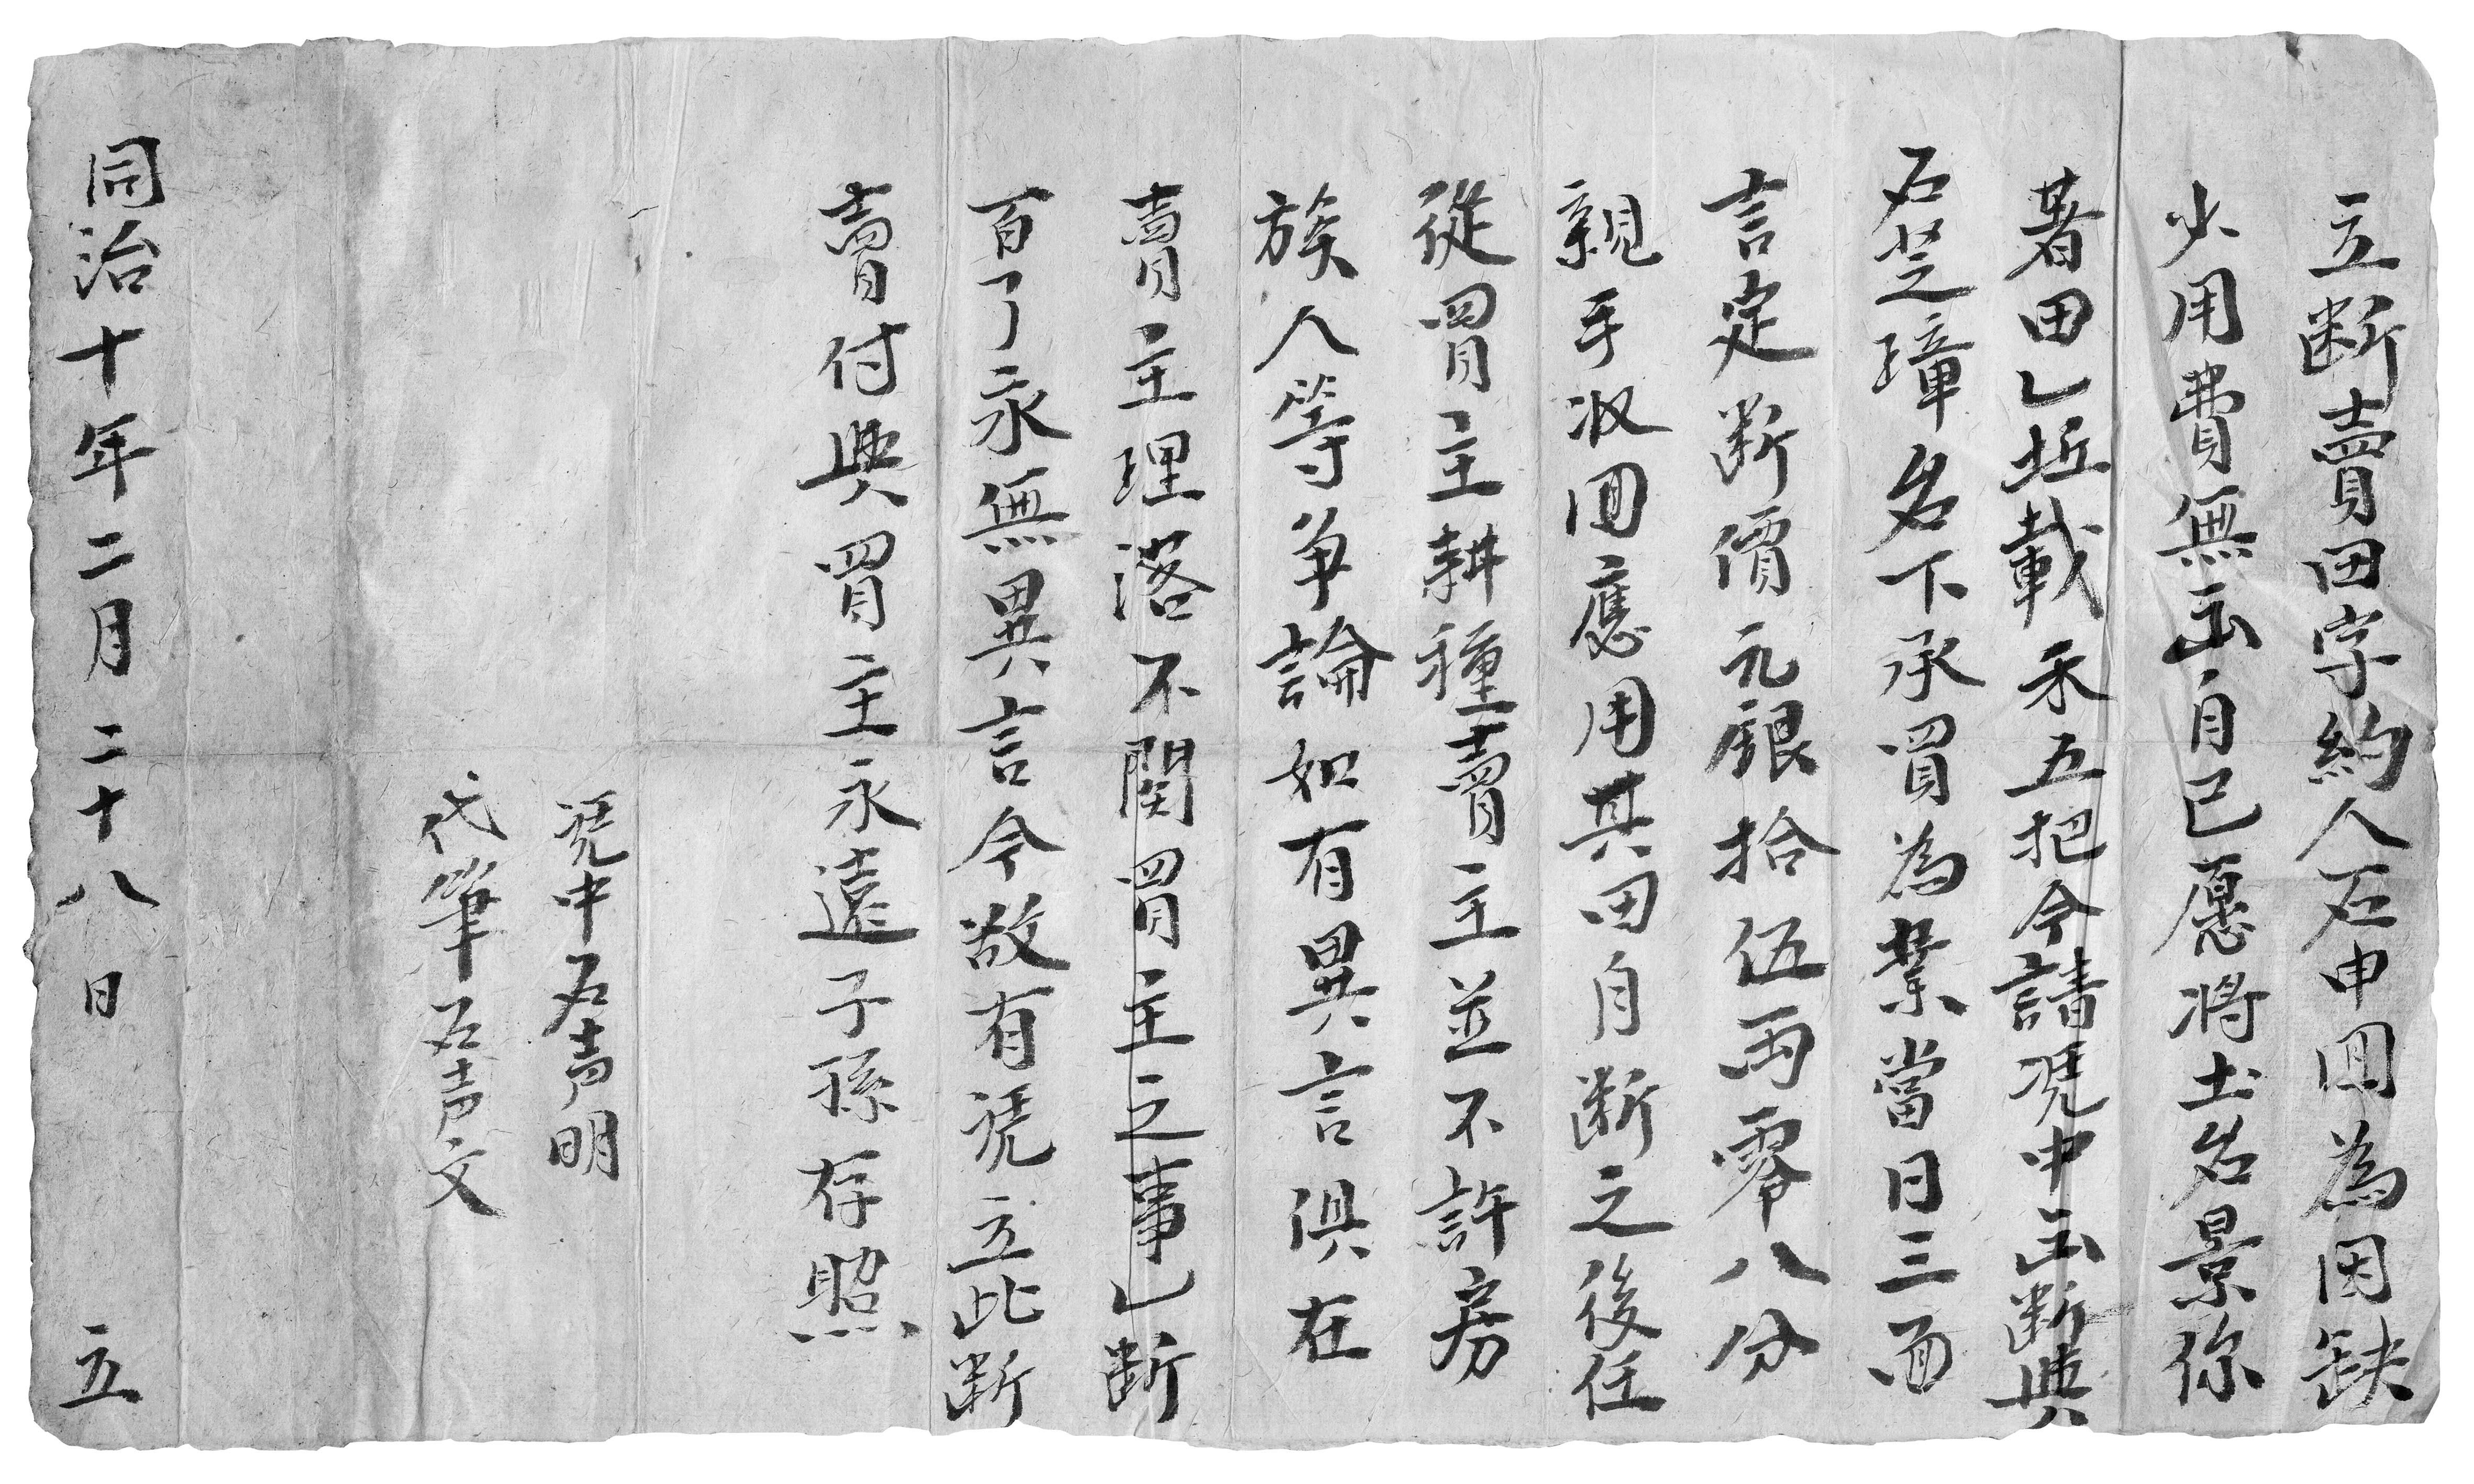 立断賣田字約人石申回為因缺
少用費無出自己愿將土名景你
著田乙坵載禾五把今請凴中出断與
石芝璋名下承買為業當日三面
言定断價元銀拾伍両零八分
親手收回應用其田自断之後任
從買主耕種賣主並不許房
族人等争論如有異言俱在
賣主理落不関買主之事乚断
百了永無異言今欲有凴立此断
賣付與買主永遠子孫存照
凴中石声明
代筆石声文
同治十年二月二十八日 立